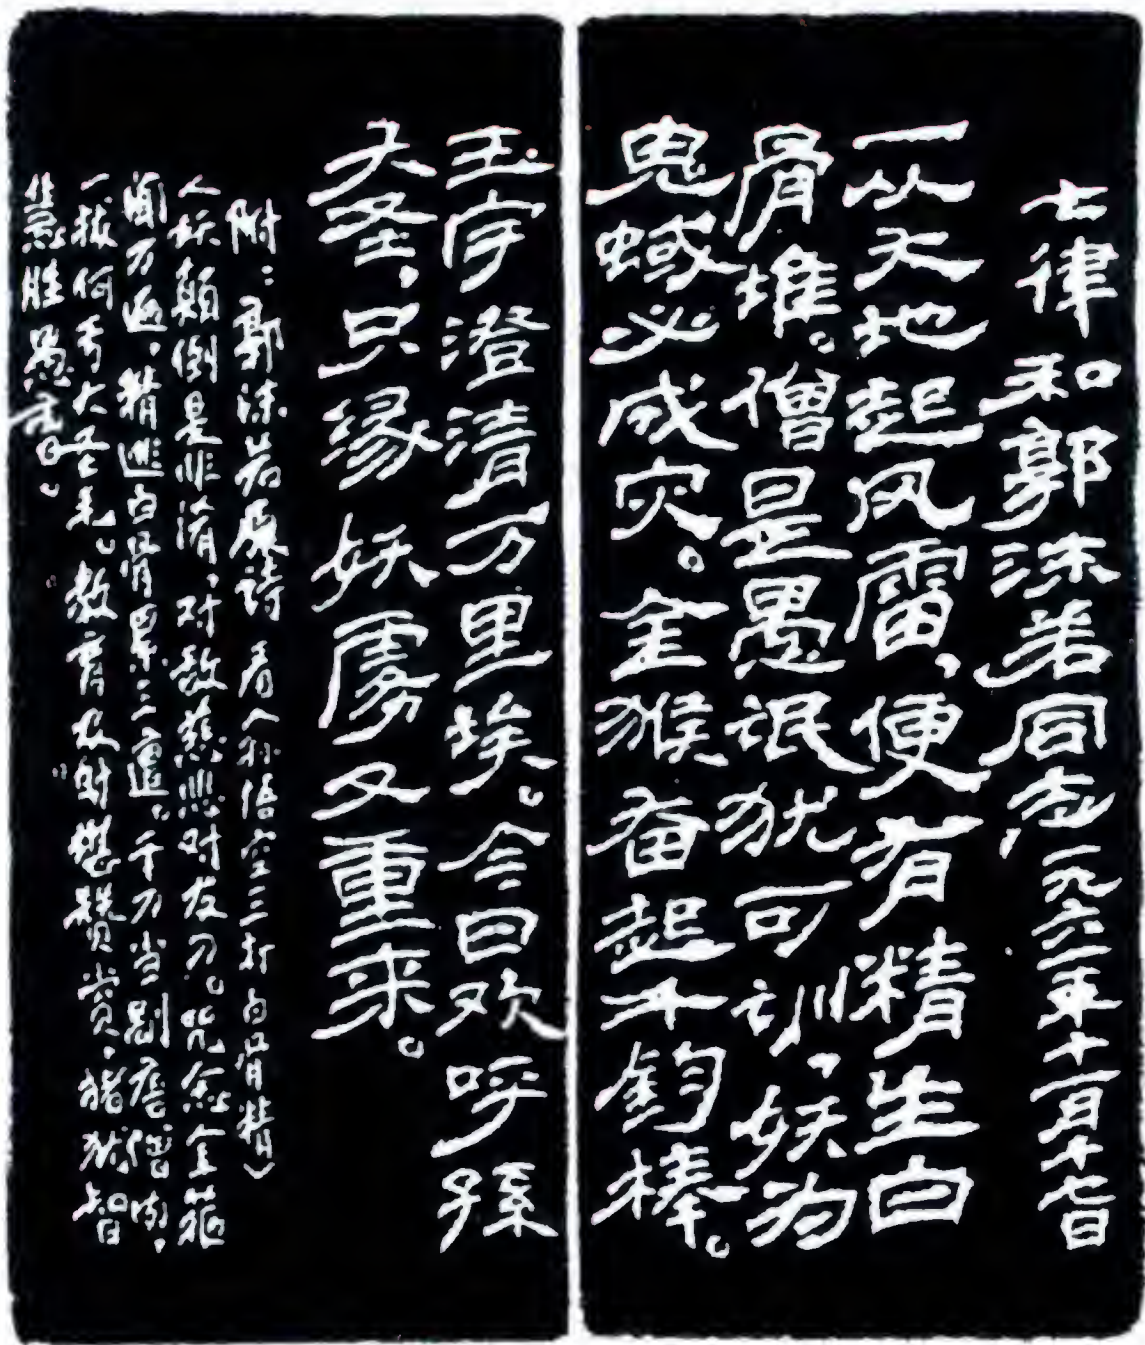 七律 和郭沫若同志,一九六一年十一月十七日
一从大地起风雷,便有精生白
骨堆。僧是愚氓犹可训,妖为
鬼蜮必成灾。金猴奋起千钧棒。
玉宇澄清万里埃。今日欢呼孫
大圣,只缘妖雾又重来。
附:郭沫若原诗 看《孙悟空三打白骨精》
人妖颠倒是非淆,对敌慈悲对友刀。咒念金箍
闻万遍,精逃白骨累三遭。千刀当剐唐僧肉,
一拔何亏大圣毛。教育及时堪赞赏,猪犹智
慧胜愚曹。